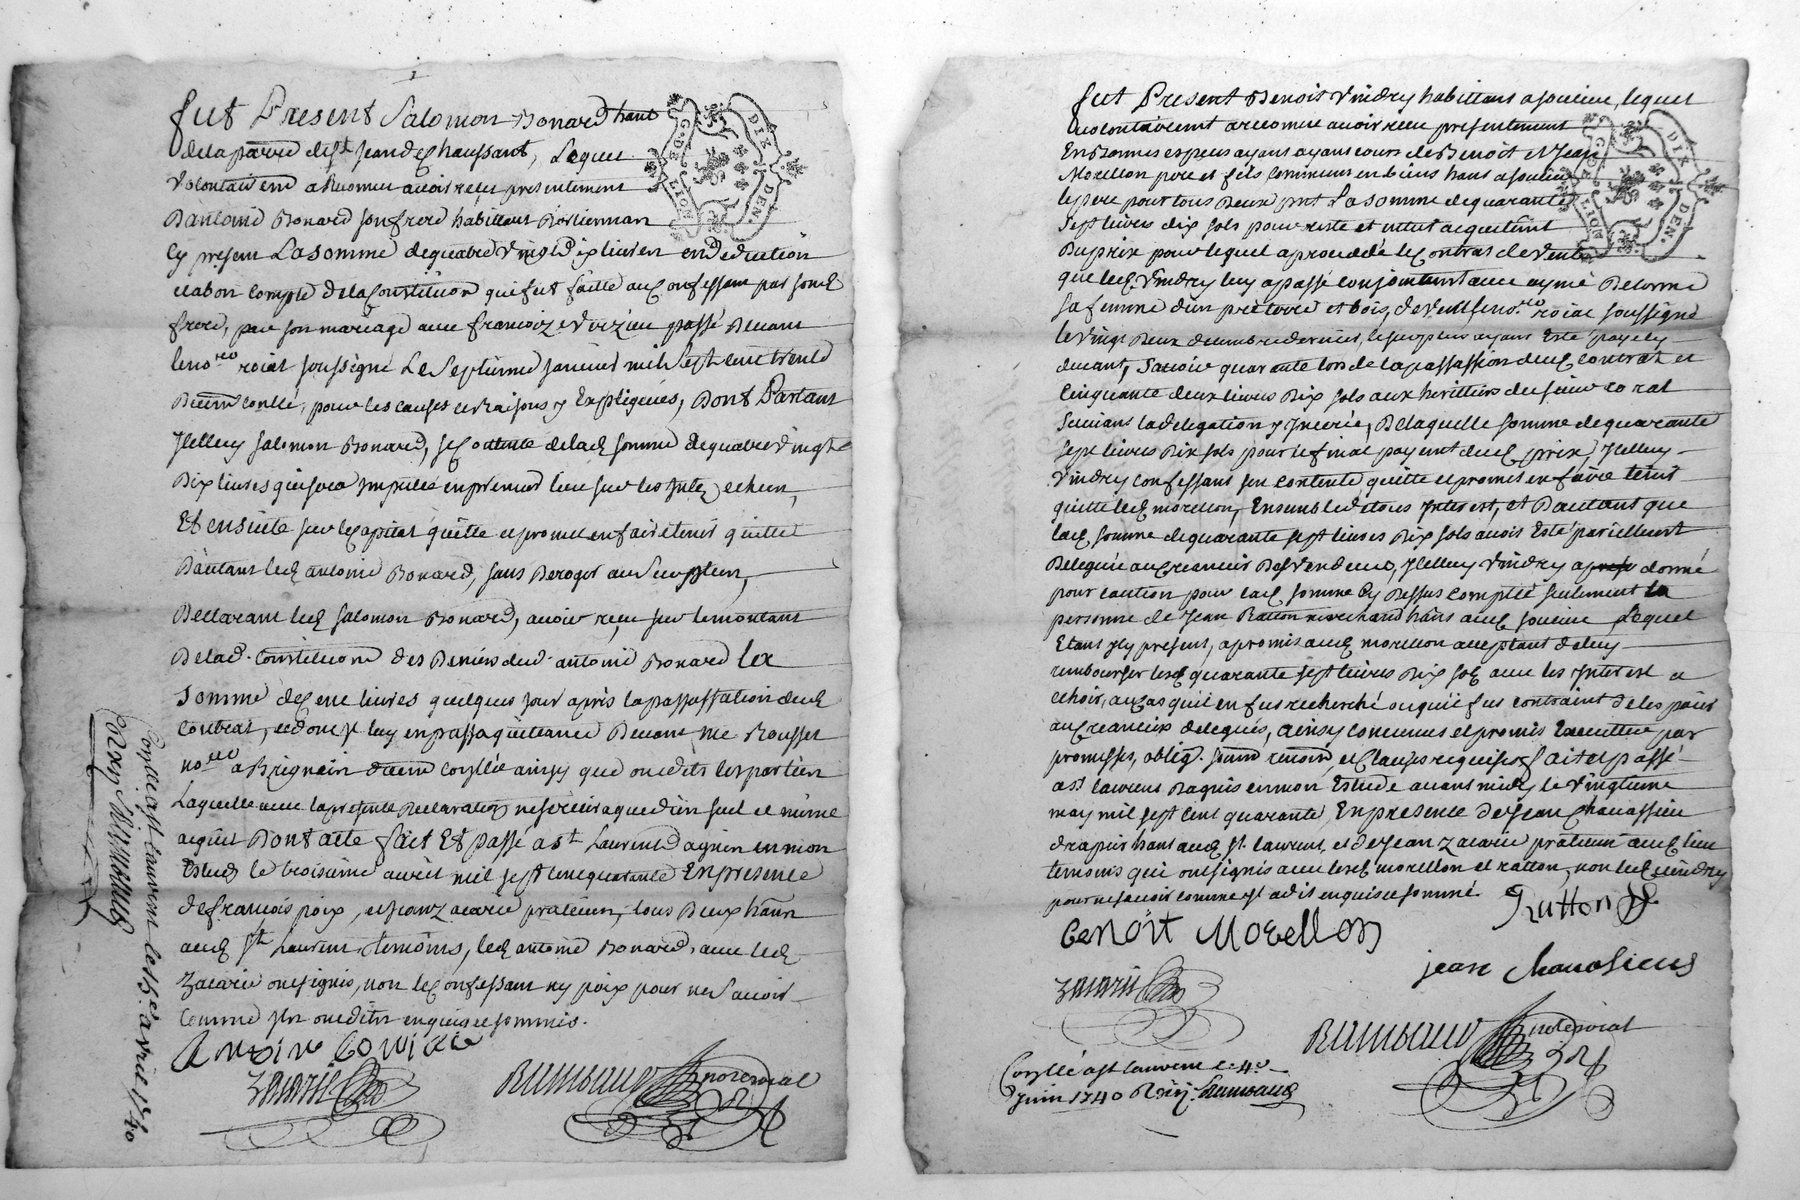 fut Present Salomon Bonard hant
de la parre de st Jean de Chaussant, Lequel
Volontairemt a Reconnu avoir reçu presentement
D'antoine Bonard son frere habittant
Cy present La somme de quatre Vingt Dix livres en Deduction
et a bon Compte de la Constitution qui fut faitte au Confessant par son d
frere, par son mariage avec francoize passé Devant
le nore roial soussigné Le Septieme Janvier mil Sept cent trente
controllé, pour les causes et raisons y Expliquées, Dont Partant
Jcelluy Salomon Bonard, se Contente de lad somme de quatre Vingt
Dix livres qui sera Jmputée en premier lieu sur les Jnterz echeus,
Et ensuite sur le Capital quitte et promet en faire tenir quitte
Dautant led antoine Bonard, sans Deroger au Surplus,
Declarant led Salomon Bonard, avoir reçu sur le montant
De lad. Constitution des Deniers dud. antoine Bonard la
Somme de Cent livres quelques jour après la passassation dud
Contrat, et dont Jl luy en passa quittance Devant Me Rousset
nore a Brignain controllée ainsy que ont dits les parties
Laquelle avec la presente Declaration ne servira que d'un seul et même
acquit Dont acte fait Et Passé a St Laurent d'agnien en mon
Estude le troisieme avril mil sept cent quarante En presence
de francois poix, et Jean zacarie praticien, tous Deux hants
aud St Laurent temoins, led antoine Bonard avec led
Zacarie ont signés, non le Confessant ny poix pour ne Scavoir
Comme Jls ont dit enquis et sommés.
Antoine
Zacarie
Rambaud no.re roial
Conllé a st laurent le 15e avril 1740
Rambaud
fut Present Benoit Vindry habittant a soucieu, lequel
volontairemt a reconnu avoir reçu presentement
En bonnes especes ayant cours de Benoit et Jean
Morellon pere et fils communs en biens hants a soucieu
le pere pour tous Deux pnt La somme de quarante
Sept livres dix sols pour reste et entier acquittemt
Du prix pour lequel a procedé le Contrat de Vente
que led. Vindry luy a passé conjointemt avec aymé Delorme
sa femme d'un pré terre et bois, devant le no.re roial soussigné
le vingt Deux decembre dernier, le surplus ayant Esté payé cy
devant, Scavoir quarante lors de la passassion dud Contrat et
Cinquante deux livres Dix sols aux herittiers de
Suivant la delegation y Jnserée, De laquelle somme de quarante
Sept livres Dix sols pour le final payemt dud prix Jcelluy
Vindry confessant se contente quitte et promet en faire tenir
quitte led morellon, Ensemble de tous Jnterest, et Dautant que
lad somme de quarante sept livres Dix sols avoit Esté pareillemt
Deleguée au Creancier Des Vendeurs, Jcelluy Vindry a donné
pour caution pour lad somme Cy Dessus Comptée seulement la
personne de Jean Ratton marchand hant aud soucieu Lequel
Etant Jcy present, a promis aud morellon acceptant de luy
rembourser lesd quarante sept livres Dix sols avec les Jnterest a
echoir, au Cas qu'il en fut recherché ou qu'il fut contraint de les paier
au Creancier delegués, ainsy convenus et promis Executter par
promesses, oblig. et Clauses requises fait et passé
a st laurent Dagnis en mon Estude avant midy le Vingtieme
may mil sept Cent quarante, En presence de Jean Chavassieu
drapier hant aud st. laurent, et de Jean zacarie praticien aud lieu
temoins qui ont signés avec lesd morellon et ratton, non led vindry
pour ne scavoir comme Jl a dit enquis et sommé.
Benoit Morellon
Rutton
Zacarie
jean Chavasieus
Rambaud no.re roial
Conllé a st laurent le 4e
Juin 1740 Rambaud
DIX DEN.
G. DE LION
DIX DEN.
G. DE LION